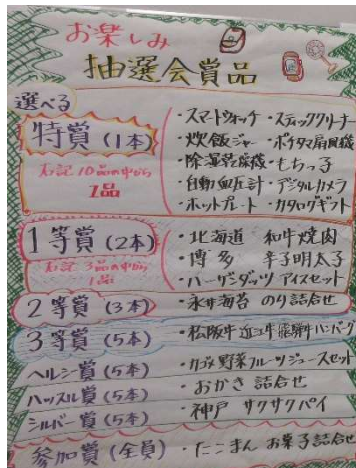 お楽しみ
抽選会賞品
選べる
特賞(1本)
右記10品の中から
1品
・スマートウォッチ ・スティッククリーナー
・炊飯ジャー ・ポイタマ扇風機
・除湿乾燥機 ・もちっ子
・自動血圧計 ・デジタルカメラ
・ホットプレート ・カタログギフト
1等賞(2本)
右記3品の中から
1品
・北海道 和牛焼肉
・博多 辛子明太子
・ハーゲンダッツ アイスセット
2等賞(3本) ・永井海苔 のり詰合せ
3等賞(5本) ・松阪牛近江牛飛騨牛ハンバーグ
ヘルシー賞(5本) ・カゴメ野菜フルーツジュースセット
ハッスル賞(5本) ・おかき詰合せ
シルバー賞(5本) ・神戸 サクサクパイ
参加賞(全員) ・たこまん お菓子詰合せ